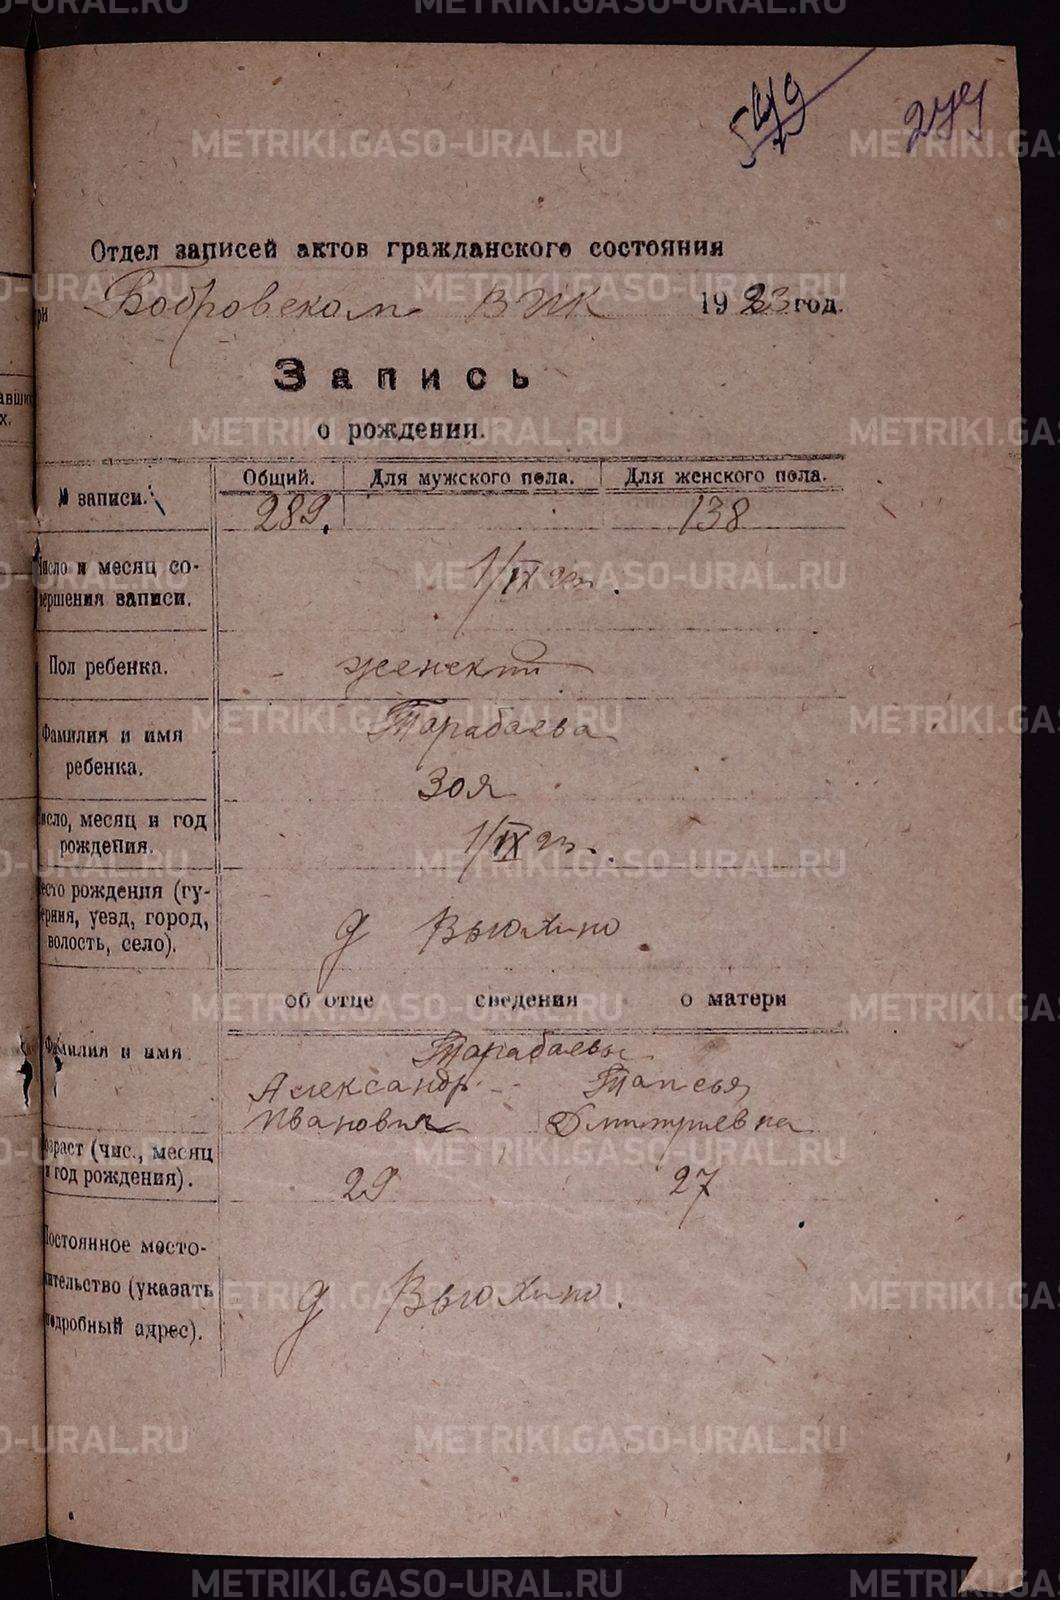 279
Отдел записей актов гражданского состояния
при Бобровском ВИК 1923 год.
Запись
о рождении.
№ записи.
Общий. Для мужского пола. Для женского пола.
289. 138
Число и месяц со-
вершения записи.
1/IX 23.
Пол ребенка.
женский
Фамилия и имя
ребенка.
Тарабаева
Зоя
Число, месяц и год
рождения.
1/IX 23.
Место рождения (гу-
берния, уезд, город,
волость, село).
д Вьюхино
об отце сведения о матери
Фамилия и имя
Тарабаевы
Александр Таисья
Иванович Дмитриевна
Возраст (чис., месяц
и год рождения).
29 27
Постоянное место-
жительство (указать
подробный адрес).
д Вьюхино.
METRIKI.GASO-URAL.RU